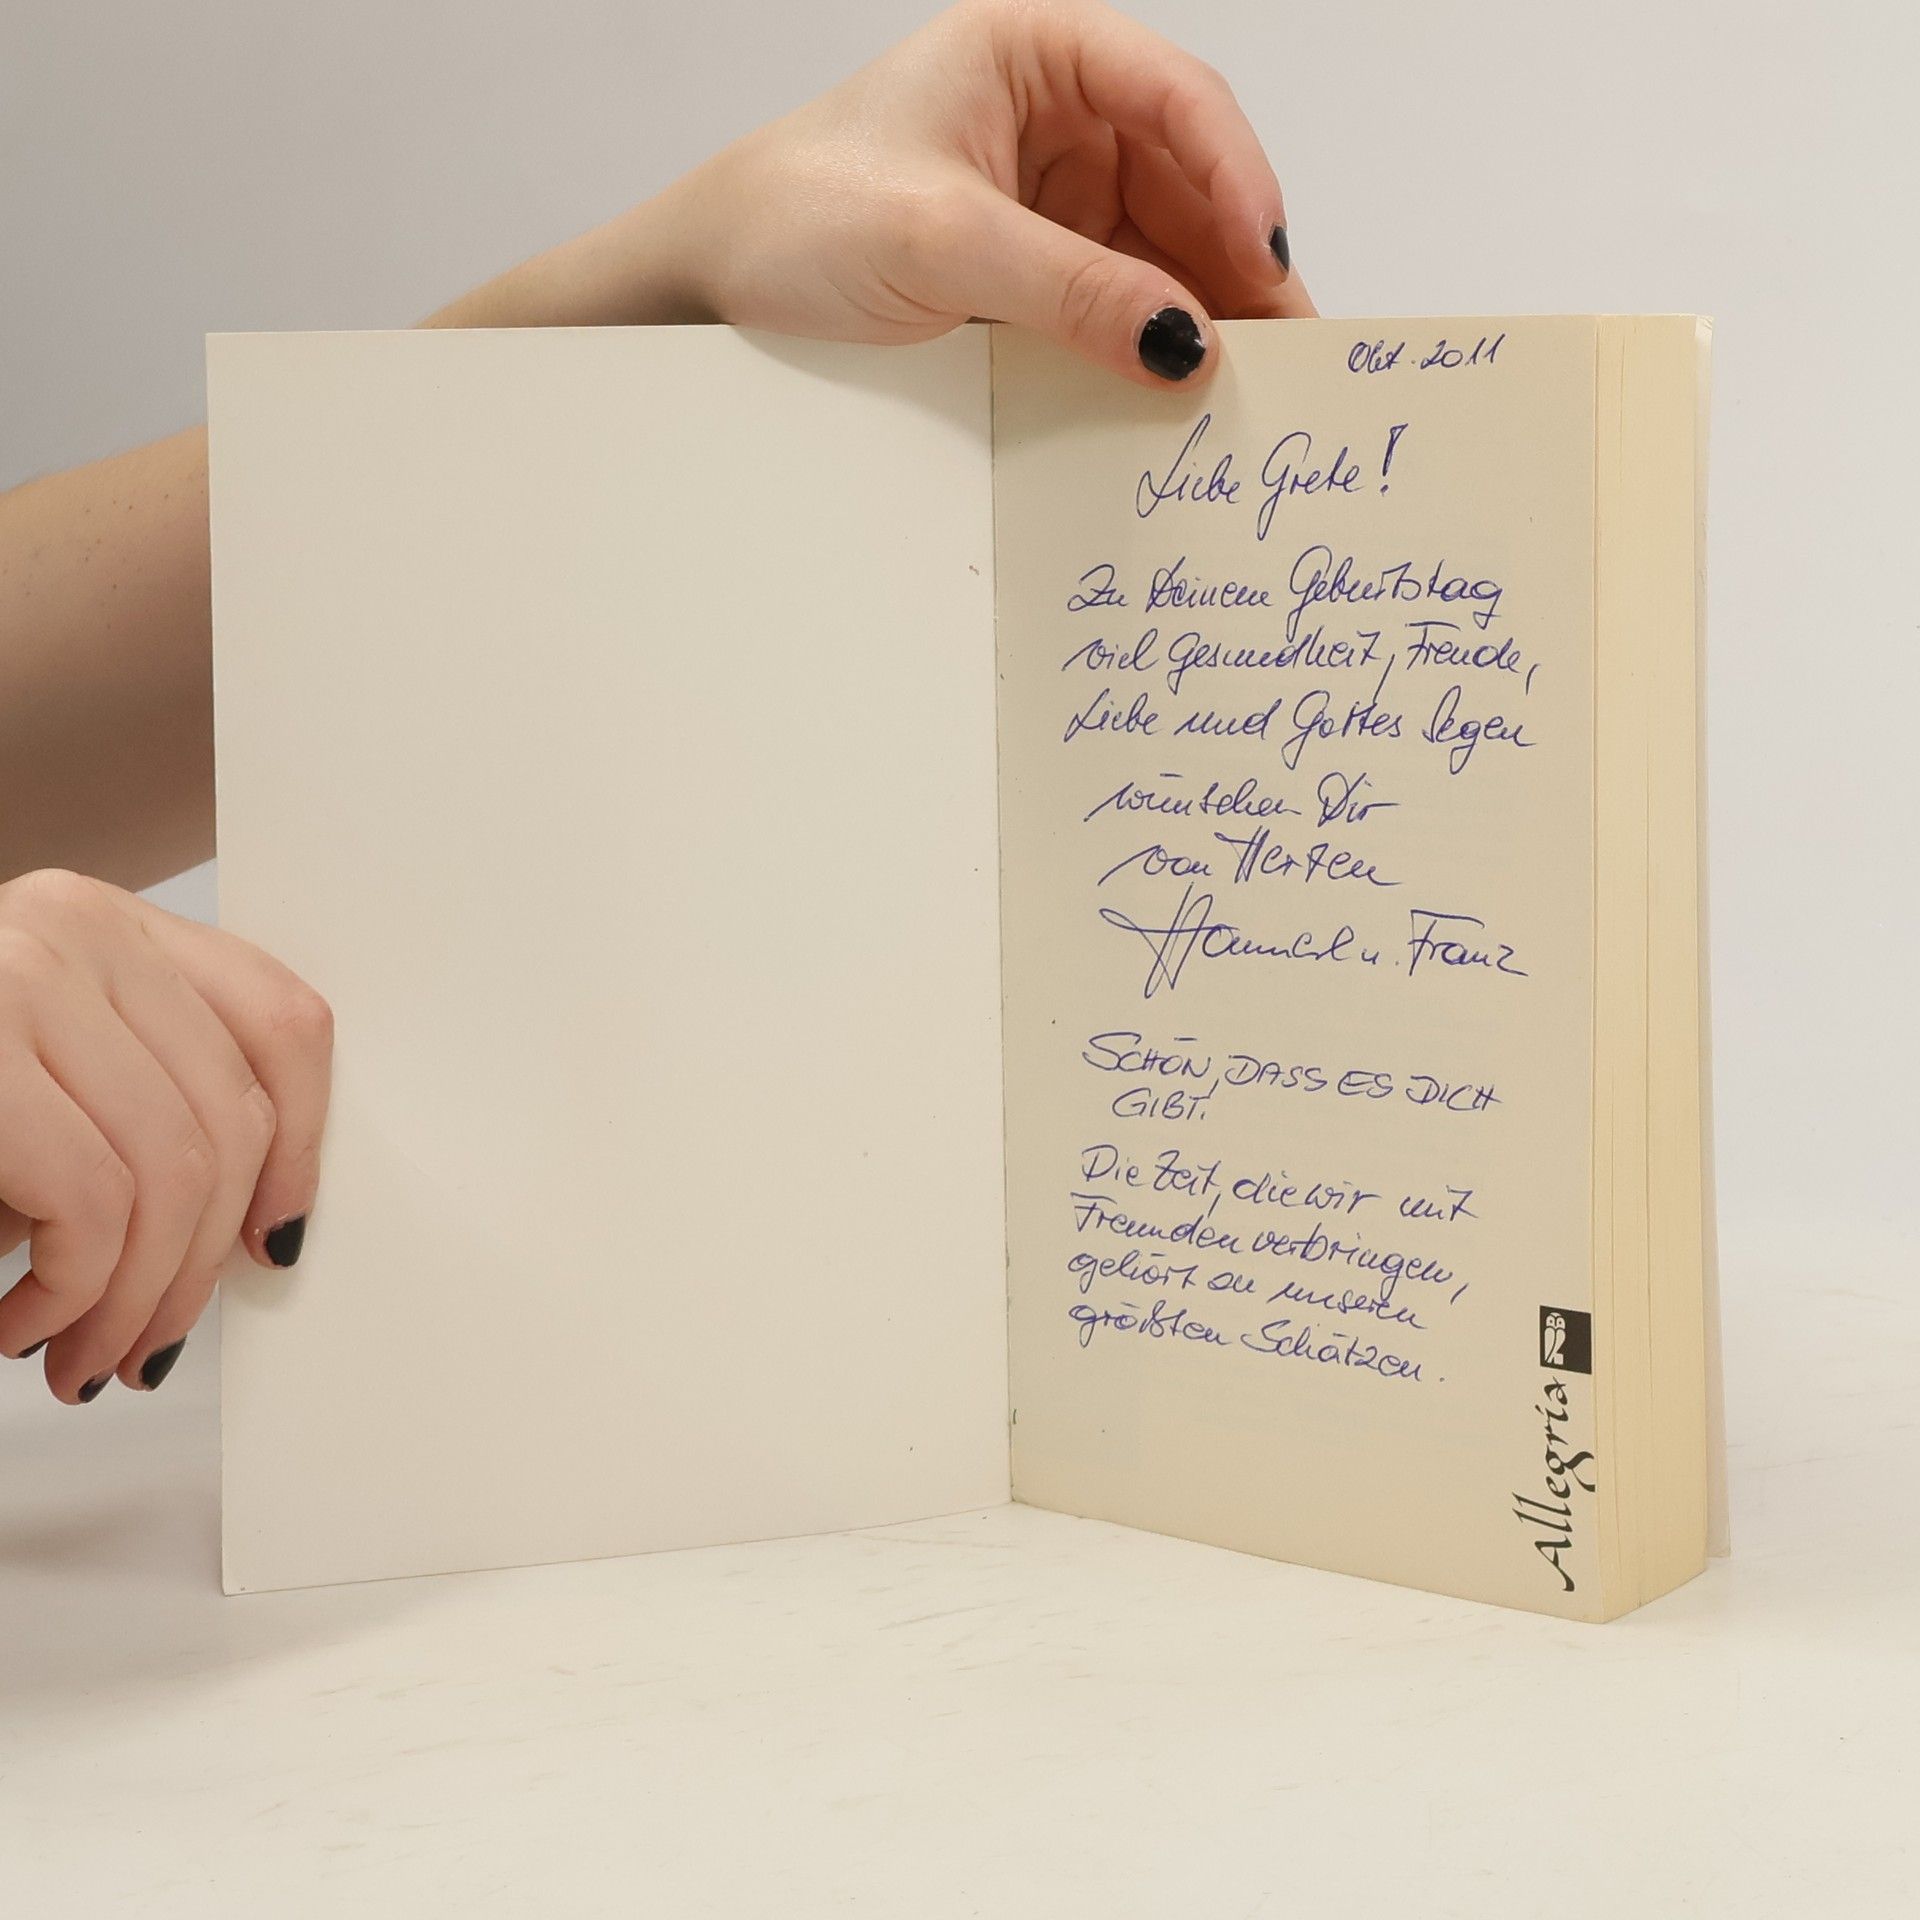 Okt. 2011
Liebe Grete!
Zu Deinem Geburtstag
viel Gesundheit, Freude,
Liebe und Gottes Segen
wünschen Dir
von Herzen
Hannerl u. Franz
SCHÖN, DASS ES DICH
GIBT.
Die Zeit, die wir mit
Freunden verbringen,
gehört zu unseren
größten Schätzen.
Allegria